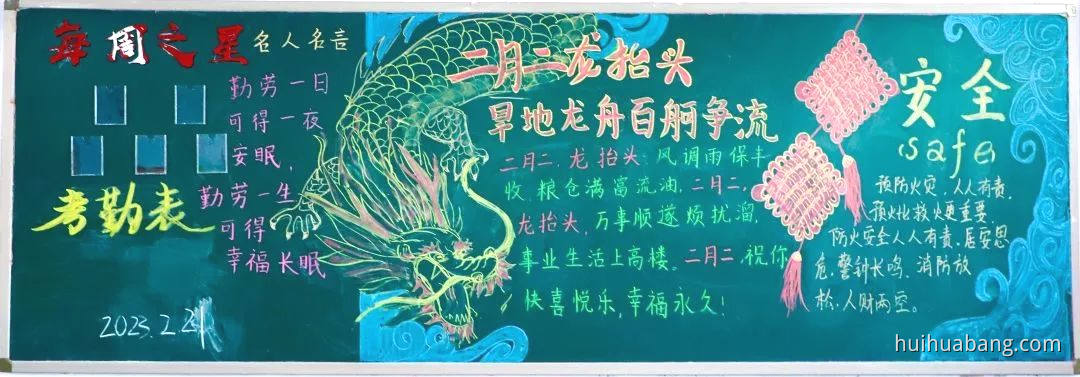 每周之星
名人名言
勤劳一日
可得一夜
安眠,
勤劳一生
可得
幸福长眠
考勤表
2023.2.21
二月二龙抬头
旱地龙舟百舸争流
二月二,龙抬头,风调雨保丰
收,粮仓满富流油,二月二,
龙抬头,万事顺遂烦扰溜,
事业生活上高楼。二月二,祝你
快喜悦乐,幸福永久!
安全
safe
预防火灾,人人有责,
预火比救火更重要,
防火安全人人有责,居安思
危,警钟长鸣,消防放
松,人财两空。
huihuabang.com